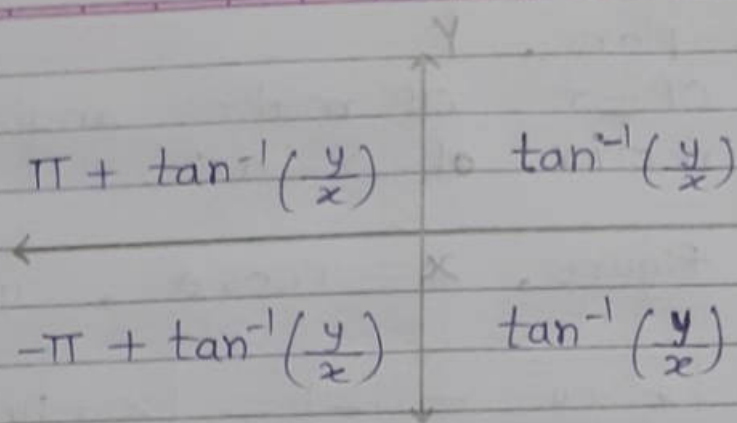 Y
π + tan⁻¹(y/x) tan⁻¹(y/x)
x
-π + tan⁻¹(y/x) tan⁻¹(y/x)